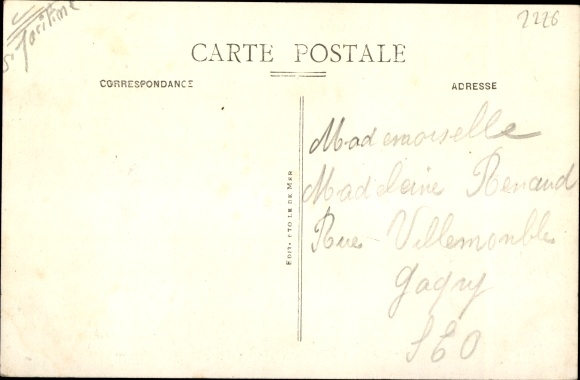 S. Maritime
2226
CARTE POSTALE
CORRESPONDANCE
ADRESSE
Mademoiselle
Madeleine Renaud
Rue Villemomble
Gagny
S E O
EDIT. ETOILE DE MER